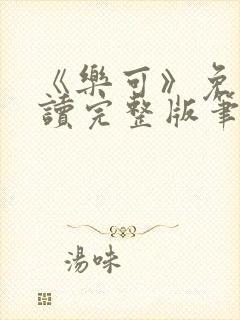 《樂可》免
讀完整版筆
湯味